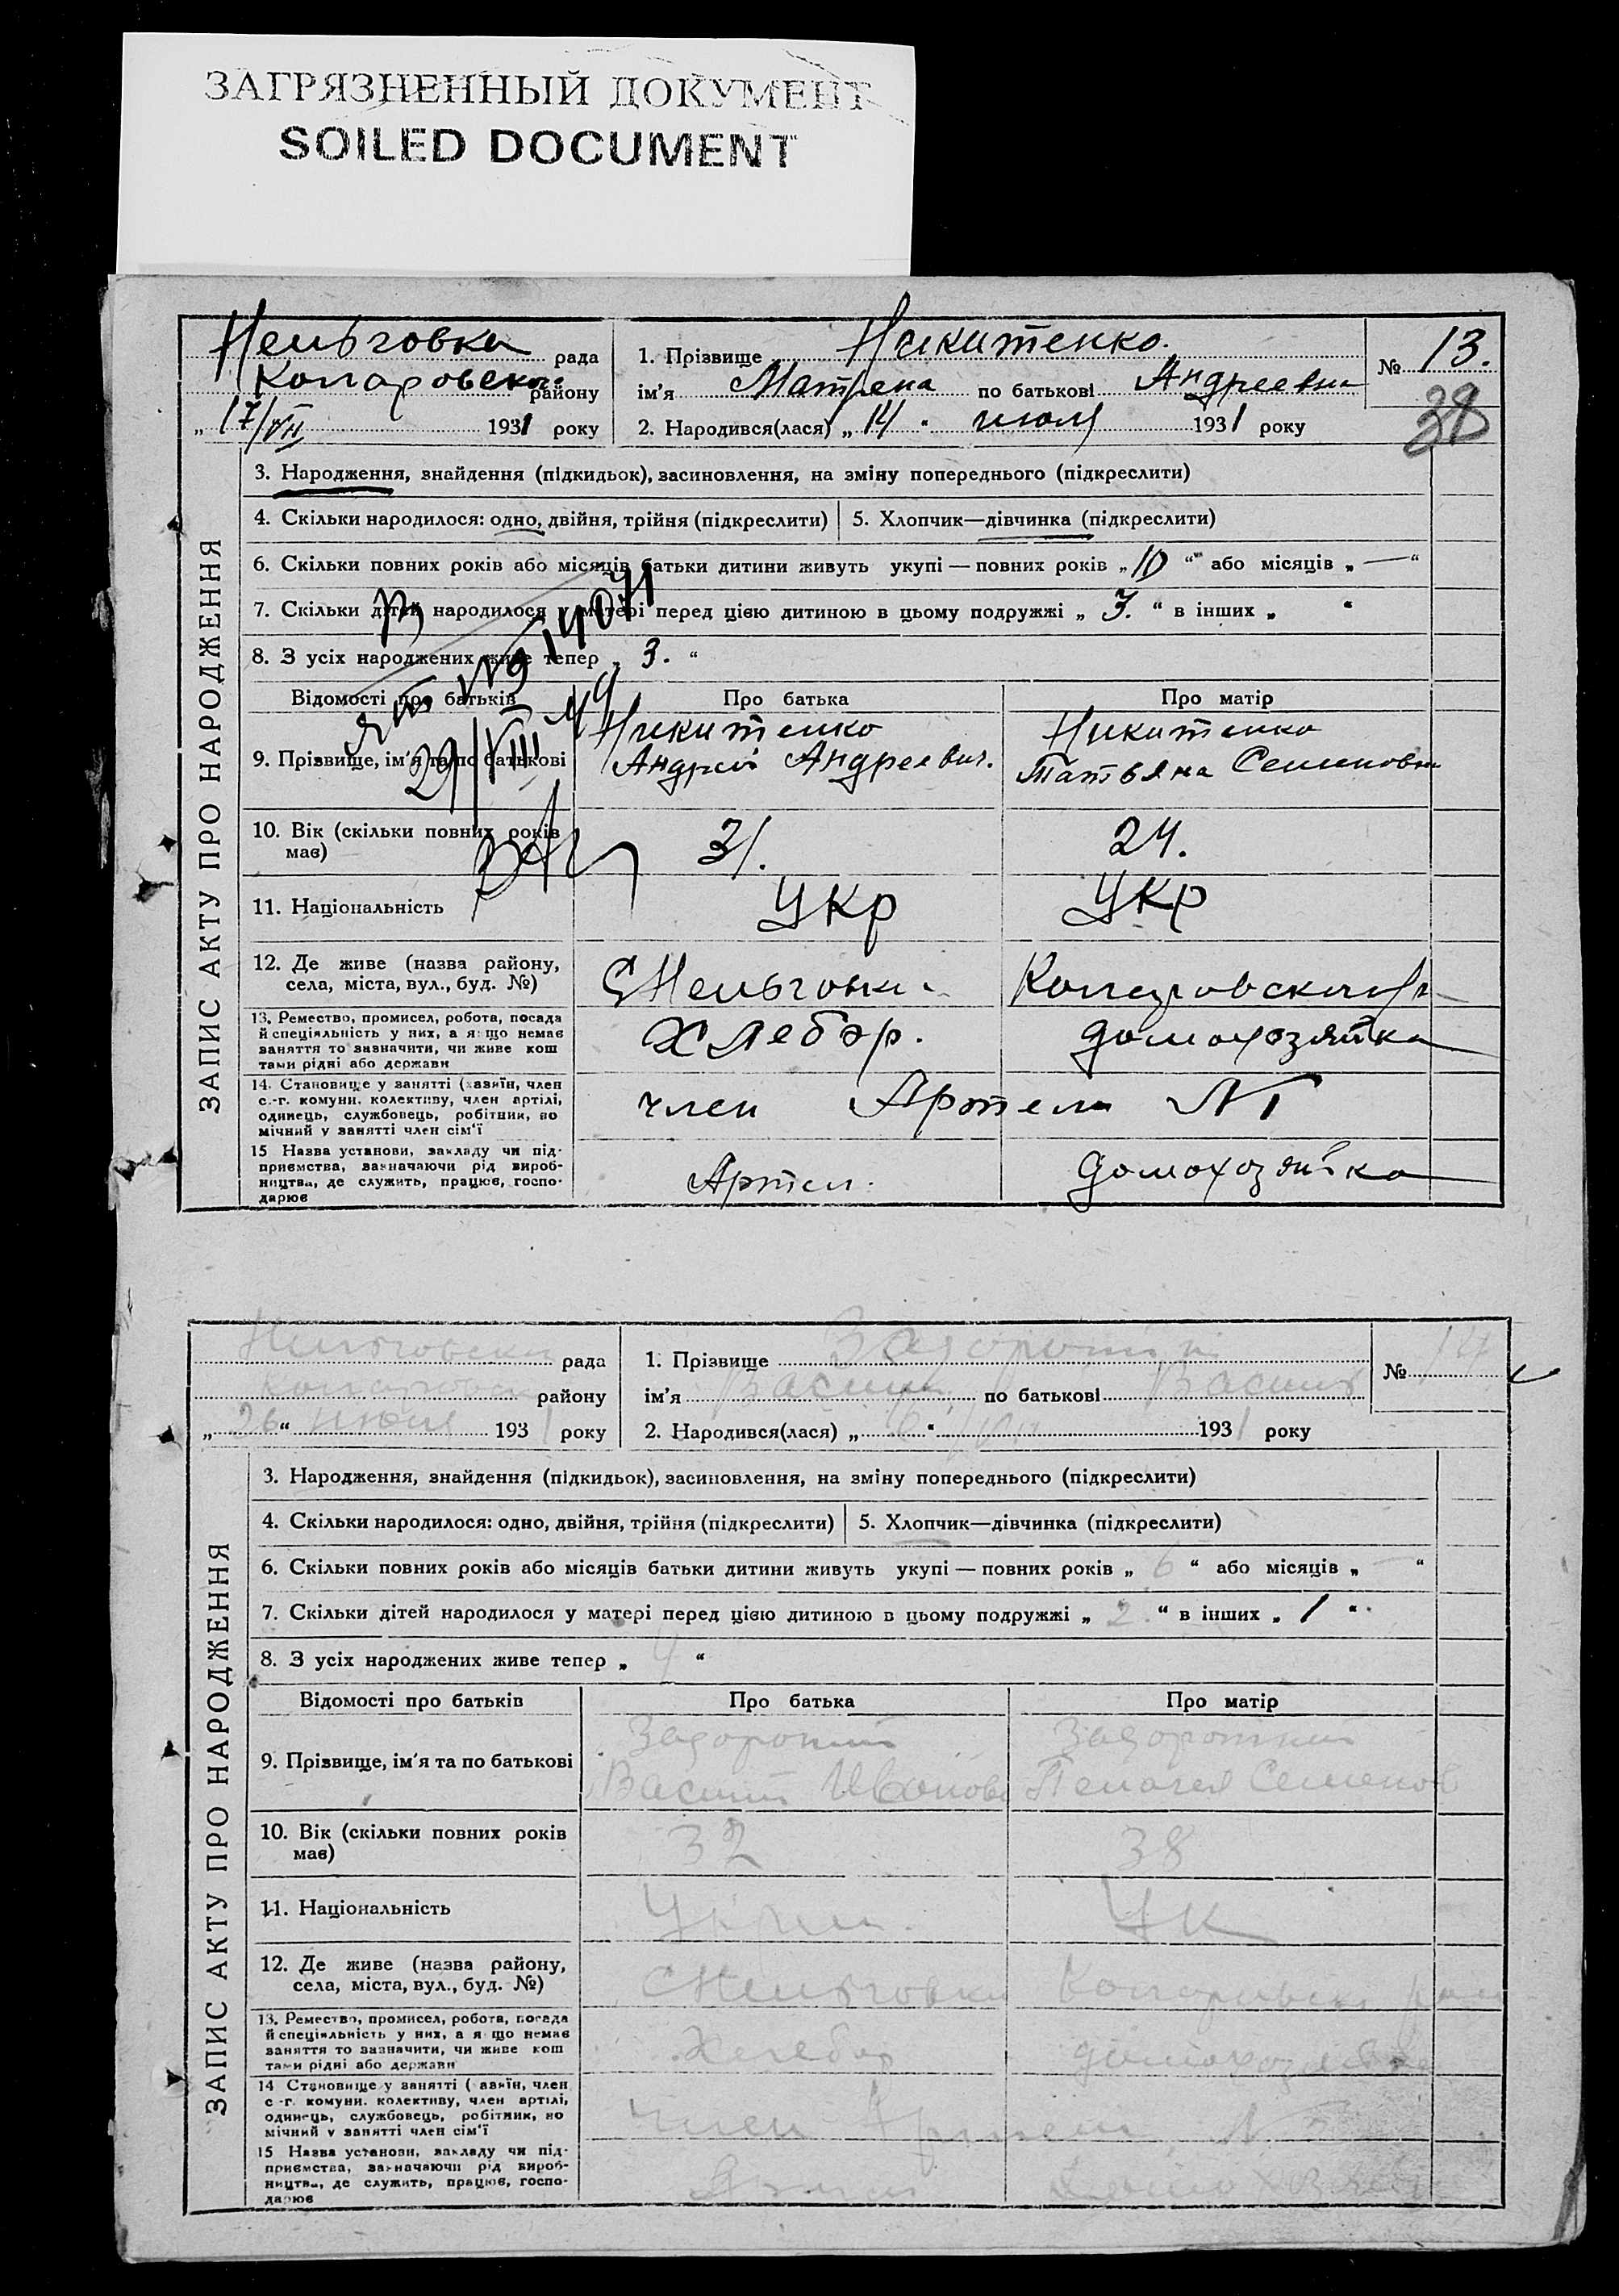 ЗАГРЯЗНЕННЫЙ ДОКУМЕНТ
SOILED DOCUMENT
ЗАПИС АКТУ ПРО НАРОДЖЕННЯ
Нельговка рада
району
„17/VII 1931 року
1. Прізвище Никитенко.
ім'я Матрена по батькові Андреевна
2. Народився(лася) „14" июля 1931 року
№ 13.
38
3. Народження, знайдення (підкидьок), засиновлення, на зміну попереднього (підкреслити)
4. Скільки народилося: одно, двійня, трійня (підкреслити)
5. Хлопчик—дівчинка (підкреслити)
6. Скільки повних років або місяців батьки дитини живуть укупі — повних років „10" або місяців „—"
7. Скільки дітей народилося у матері перед цією дитиною в цьому подружжі „3." в інших „ "
8. З усіх народжених живе тепер „3."
№ 14071
29/VIII
Відомості про батьків Про батька Про матір
9. Прізвище, ім'я та по батькові
Никитенко
Андрей Андреевич.
Никитенко
Татьяна Семеновна
10. Вік (скільки повних років має) 31. 24.
11. Національність Укр Укр
12. Де живе (назва району,
села, міста, вул., буд. №)
С Нельговка
13. Ремество, промисел, робота, посада
й спеціяльність у них, а якщо немає
заняття то зазначити, чи живе кош
тами рідні або держави
Хлебор. домохозяйка
14. Становище у занятті (хазяїн, член
с.-г. комуни, колективу, член артілі,
одинець, службовець, робітник, по
мічний у занятті член сім'ї
член Артели №1
15 Назва установи, закладу чи під-
приємства, зазначаючи рід вироб-
ництва, де служить, працює, госпо-
дарює
Артел. домохозяйка
ЗАПИС АКТУ ПРО НАРОДЖЕННЯ
рада
району
„26" июля 1931 року
1. Прізвище
ім'я Василий по батькові
2. Народився(лася) „ " 1931 року
№ 14
3. Народження, знайдення (підкидьок), засиновлення, на зміну попереднього (підкреслити)
4. Скільки народилося: одно, двійня, трійня (підкреслити)
5. Хлопчик—дівчинка (підкреслити)
6. Скільки повних років або місяців батьки дитини живуть укупі — повних років „6" або місяців „—"
7. Скільки дітей народилося у матері перед цією дитиною в цьому подружжі „2." в інших „1"
8. З усіх народжених живе тепер „4"
Відомості про батьків Про батька Про матір
9. Прізвище, ім'я та по батькові
Пелагея Семенов
10. Вік (скільки повних років має) 32 38
11. Національність Ук
12. Де живе (назва району,
села, міста, вул., буд. №)
С Нельговка
13. Ремество, промисел, робота, посада
й спеціяльність у них, а якщо немає
заняття то зазначити, чи живе кош
тами рідні або держави
Хлебор домохозяйка
14 Становище у занятті (хазяїн, член
с.-г. комуни, колективу, член артілі,
одинець, службовець, робітник, по
мічний у занятті член сім'ї
член Артели
15 Назва установи, закладу чи під-
приємства, зазначаючи рід вироб-
ництва, де служить, працює, госпо-
дарює